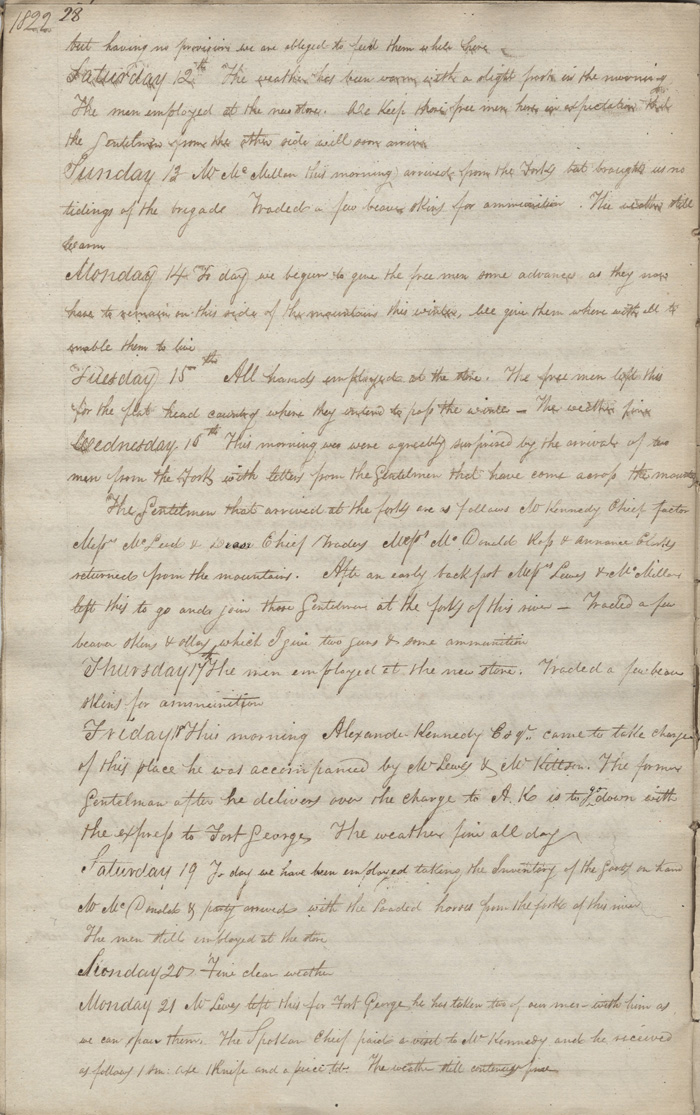 1822 28
but having no provision we are obleged to feed them while here
Saturday 12th The weather has been warm with a slight frost in the morning
The men employed at the new store. We keep these free men here in expectation that
the Gentelmen from the other side will soon arrive
Sunday 13 Mr McMillan this morning arrived from the Forks but brought us no
tidings of the brigade Traded a few beaver skins for ammunition. The weather still
warm
Monday 14 To day we begun to give the free men some advances as they now
have to remain on this side of the mountains this winter, we give them where with all to
enable them to live
Tuesday 15th All hands employed at the store. The free men left this
for the flat head country where they intend to pass the winter – The weather fine
Wednesday 16th This morning we were agreably surprised by the arrival of two
men from the Forks with letters from the Gentelmen that have come across the mountains
The Gentelmen that arrived at the forks are as follows Mr Kennedy Chief factor
Messrs McLeod & Dease Chief Traders Messrs McDonald Ross & Annance Clerks
returned from the mountains. After an early backfast Messrs Lewes & McMillan
left this to go and join those Gentelmen at the forks of this river – Traded a few
beaver skins & which I give two guns & some ammunition
Thursday 17th The men employed at the new store. Traded a few beaver
skins for ammunition
Friday 18 This morning Alexander Kennedy Esqr. came to take charge
of this place he was accompanied by Mr Lewes & Mr Kittson. The former
Gentelman after he delivers over the charge to A. K is to go down with
the express to Fort George The weather fine all day
Saturday 19 To day we have been employed taking the Inventory of the Goods on hand
Mr McDonald & party arrived with the loaded horses from the forks of this river
The men still employed at the store
Monday 20 Fine clear weather
Monday 21 Mr Lewes left this for Fort George he has taken two of our men with him as
we can spare them. The Spokan Chief paid a visit to Mr Kennedy and he recieved
as follows 1 sm: axe 1 Knife and a piece tob. The weather still continues fine